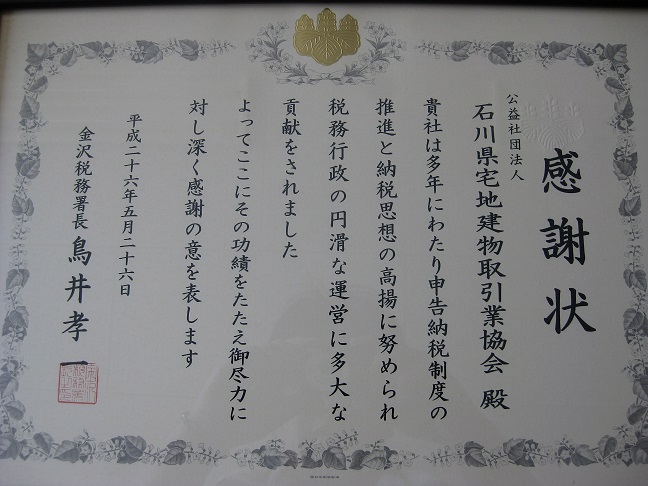 感謝状
公益社団法人
石川県宅地建物取引業協会 殿
貴社は多年にわたり申告納税制度の
推進と納税思想の高揚に努められ
税務行政の円滑な運営に多大な
貢献をされました
よってここにその功績をたたえ御尽力に
対し深く感謝の意を表します
平成二十六年五月二十六日
金沢税務署長 鳥井孝一